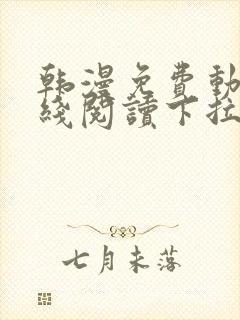 韩漫免費動
綫閱讀下拉
七月未落